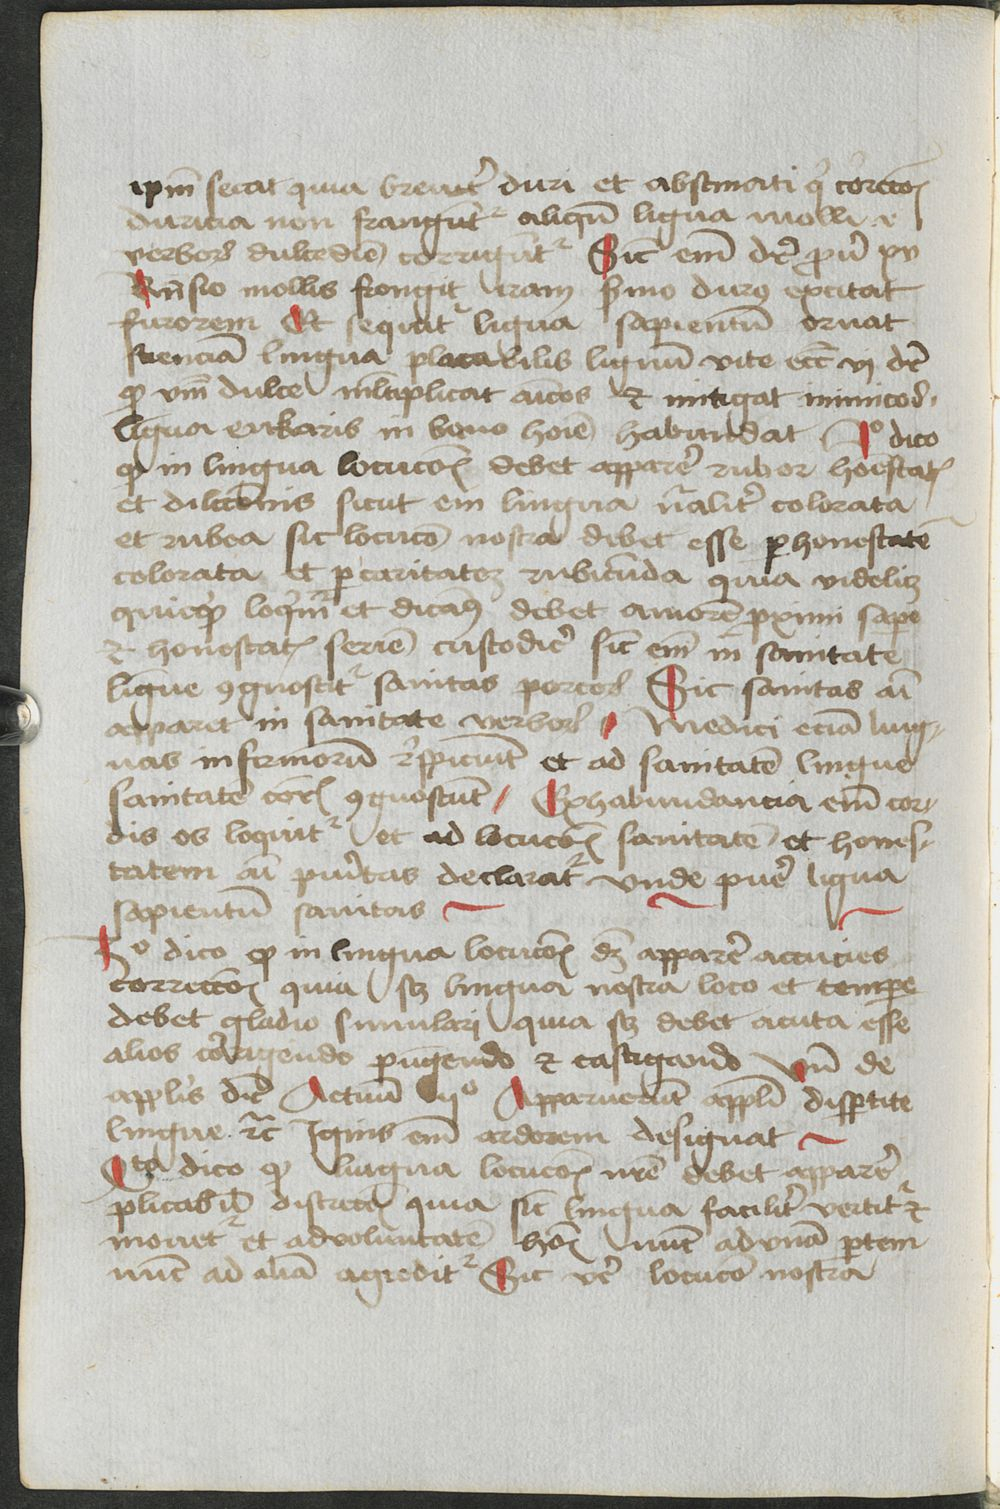 ipm̄ secat quia breuit᷑ duri et abstinati q᷑ cōrecco᷑
duricia non frangūt᷑ aliqn̄ ligua molli et
verbor᷑ dulcedīe corrigūt᷑ Sic em̄ dr̄ puer᷑ xv
Rn̄sio mollis frangit iram s̄mo durꝯ excitat
furorem Et sequit᷑ ligua sapientū ornat
sciencia lingua placabilis lignū vite ecc̄ vj dr̄
ꝙ vm̄ dulce ml̄tiplicat aīcos ⁊ mitigat inimicos
ligua eukaris in bono hoīe habundat 2º dico
ꝙ in lingua locucō᷑ debet apparē rubor honestat᷑
et dilcc̄onis sicut em̄ lingua nālit᷑ colorata
et rubea sic locucō nostra debet esse ꝑ honestatē
colorata et ꝑ caritatez rubicūda quia videlicꝫ
quicqd̄ loqm̄᷑ et dicamꝯ debet amorē ꝓximi sape
⁊ honestat᷑ seriē custodir᷑ sic em̄ in sanitate
ligue ꝯgnoscit᷑ sanitas porcor᷑ Sic sanitas aī
apparet in sanitate verbor᷑ Medici eciā ling-
uas infirmorū r᷑spiciūt et ad sanitatē lingue
sanitatē cor᷑ ꝯgnoscūt Ex habundancia em̄ cor-
dis os loquit᷑ et ad locucō᷑ sanitatē et hones-
tatem aī puritas declarat᷑ vnde puer᷑ ligua
sapientū sanitas
3º dico ꝙ in lingua locucō᷑ dꝫ apparē accucies
correccō᷑ quia sꝫ lingua nostra loco et tempe
debet gladio simulari quia sꝫ debet acuta esse
alios corrigendo pungendo ⁊ castigando Vn̄ de
appl̄is dr̄ Actuū ijº Apparuerūt appl̄i disꝑtite
lingue ⁊c̄ Ignis em̄ ardorem designat
4to dico ꝙ lingua locucō᷑ nr̄e debet apparē
plicabil̄ discreta quia sic lingua facilit᷑ vertit᷑ ⁊
mouet᷑ et ad voluntatē hoī᷑ nunc ad vnā ꝑtem
nūc ad aliā agredit᷑ Sic v᷑e locucō nostra